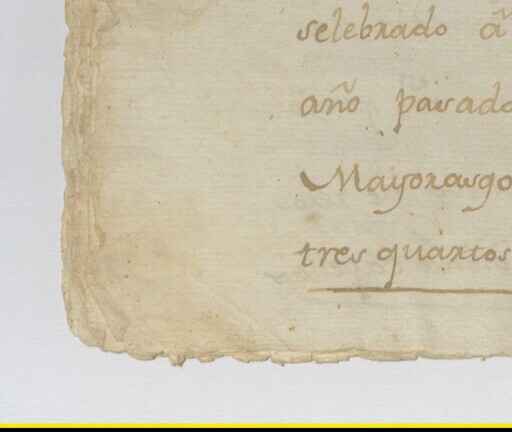 selebrado
año pasado
Mayorasgo
tres quartos